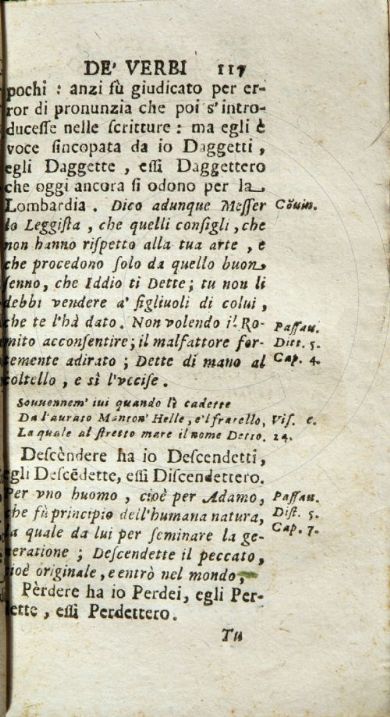 DE' VERBI 117
pochi : anzi fù giudicato per er-
ror di pronunzia che poi s'intro-
ducesse nelle scritture : ma egli è
voce sincopata da io Daggetti,
egli Daggette, essi Daggettero
che oggi ancora si odono per la
Lombardia. Dico adunque Messer Cõuin.
lo Leggista, che quelli consigli, che
non hanno rispetto alla tua arte, e
che procedono solo da quello buon
senno, che Iddio ti Dette; tu non li
debbi vendere a' figliuoli di colui,
che te l'hà dato. Non volendo il Ro- Passau.
mito acconsentire; il malfattore for- Ditt. 5.
temente adirato; Dette di mano al Cap. 4.
coltello, e sì l'vccise.
Souuennem' iui quando lì cadette
Da l'aurato Monton' Helle, e'l fratello, Vis. e.
La quale al stretto mare il nome Detto. 24.
Descèndere ha io Descendetti,
egli Descẽdette, essi Discendettero.
Per vno huomo, cioè per Adamo, Passau.
che fù principio dell'humana natura, Dist. 5.
la quale da lui per seminare la ge- Cap. 7.
neratione; Descendette il peccato,
cioè originale, e entrò nel mondo,
Pèrdere ha io Perdei, egli Per-
dette, essi Perdettero.
Tu